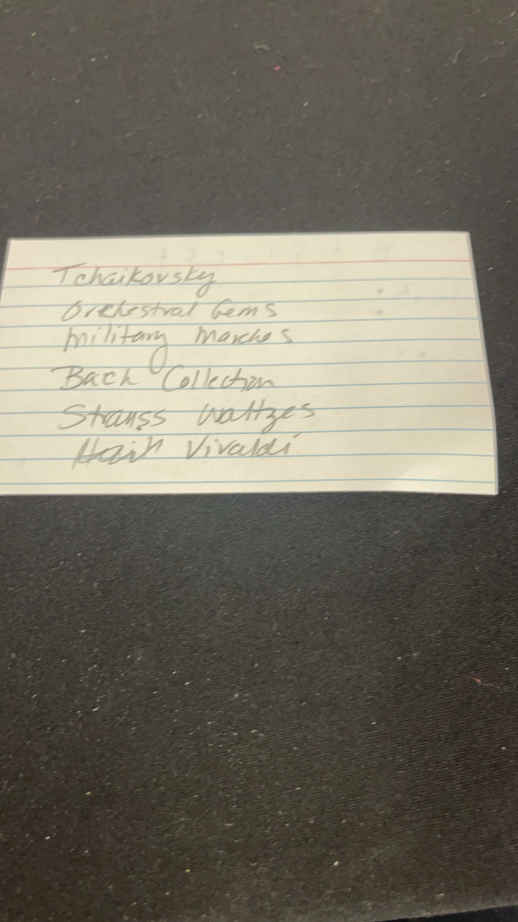 Tchaikovsky
Orchestral Gems
Military Marches
Bach Collection
Strauss Waltzes
Vivaldi